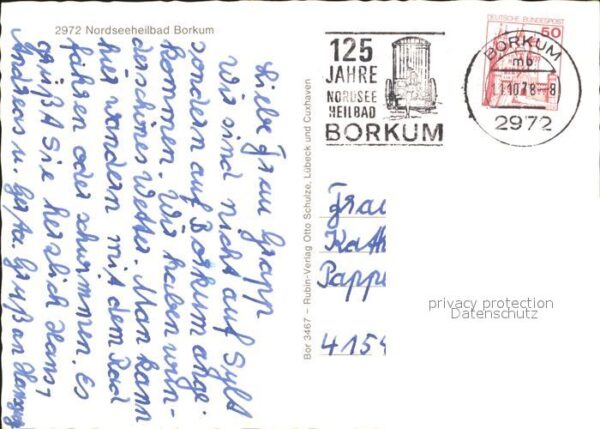 2972 Nordseeheilbad Borkum
Liebe Frau Grapp
Wir sind nicht auf Sylt
sondern auf Borkum ange-
kommen. Wir haben wun-
derschönes Wetter. Man kann
hir wandern mit dem Rad
fahren oder schwimmen. Es
grüßt Sie herzlich Hans-
Andreas u. Gruß an
Bor 3467 – Rubin-Verlag Otto Schulze, Lübeck und Cuxhaven
125
JAHRE
NORDSEE
HEILBAD
BORKUM
DEUTSCHE BUNDESPOST
50
BORKUM
mb
11.10.78-8
2972
Frau
Kath
Pappe
4154
privacy protection
Datenschutz